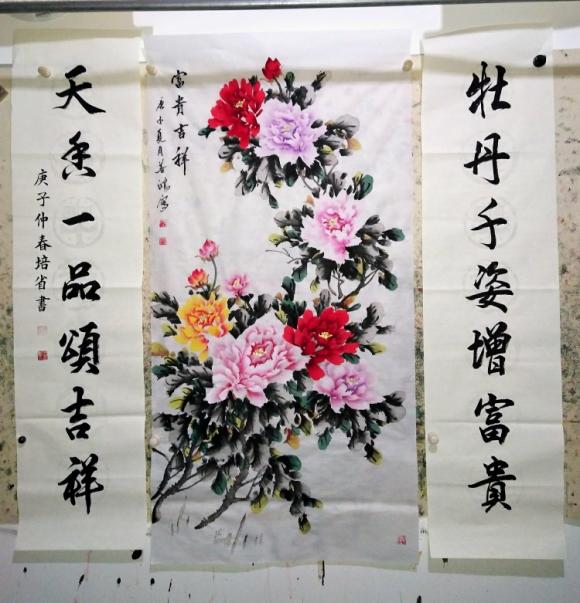 牡丹千姿增富貴
富貴吉祥
庚子夏月善鴻寫
天香一品頌吉祥
庚子仲春培省書